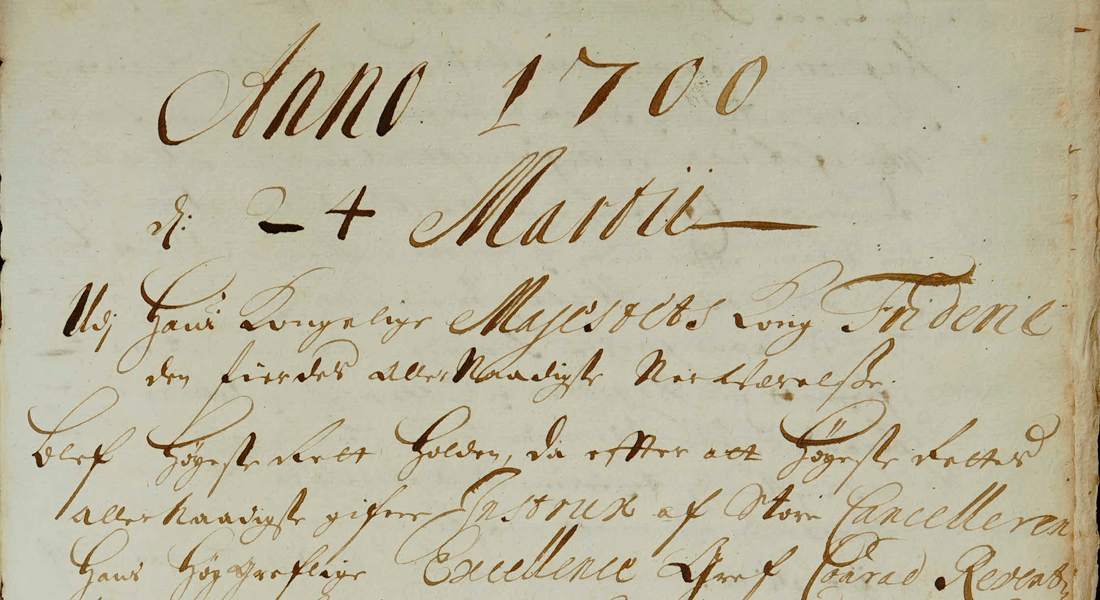 Anno 1700
d: 24 Martii
Udj Hans Kongelige Majestets Kong Frideric
den fierdes aller Naadigste Nerværelsse.
blef Høyeste Rett Holden, da effter att Høyeste Rettes
aller Naadigste gifne Instrux af Store Cancelleren
Hans Høy Greflige Excellence Gref Conrad Reventl